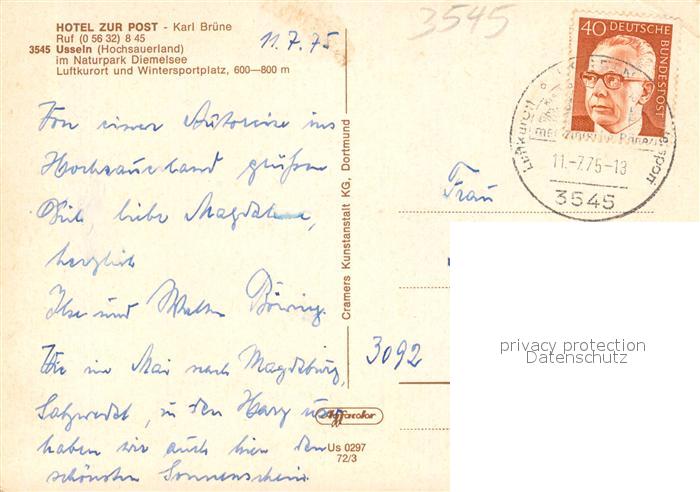 HOTEL ZUR POST - Karl Brüne
Ruf (0 56 32) 8 45
3545 Usseln (Hochsauerland)
im Naturpark Diemelsee
Luftkurort und Wintersportplatz, 600—800 m
11.7.75
3545
40
DEUTSCHE BUNDESPOST
11.-7.75-13
3545
Von einer Autoreise ins
Hochsauerland grüßen
Dich, liebe Magdalena,
herzlich
Ilse und Walter
Wie im Mai nach Magdeburg,
Salzwedel, in den Harz usw.
haben wir auch hier den
schönsten Sonnenschein.
Cramers Kunstanstalt KG, Dortmund
Frau
3092
privacy protection
Datenschutz
Agfacolor
Us 0297
72/3